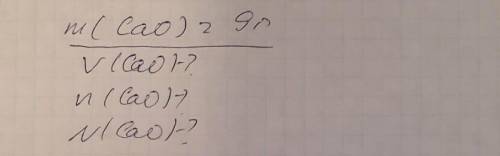 m(CaO) = 9г
V(CaO)-?
n(CaO)-?
N(CaO)-?